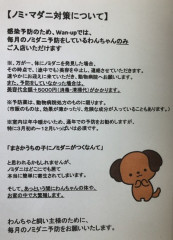 【ノミ・マダニ対策について】
感染予防のため、Wan-upでは、
毎月のノミダニ予防をしているわんちゃんのみ
ご入店いただけます
※、万が一、体にダニを発見した場合、
その時点で、(途中でも)美容を中止し、退店させていただきます。
速やかにお迎えに来ていただき、動物病院へお願いします。
また、予防をしていなかった場合は、
美容代金額+5000円(消毒・清掃代)がかかります。
※予防薬は、動物病院処方のものに限ります。
※室内は年中暖かいため、通年での予防をお勧めしますが、
特に3月初め～12月いっぱいは必須です。
「まさかうちの子にノミダニがつくなんて」
と思われるかもしれませんが、
ノミダニはどこにでも居て
本当に簡単に寄生されてしまいます。
そして、あっという間にわんちゃんの体や、
お家の中で大繁殖します。
わんちゃんと飼い主様のために、
毎月のノミダニ予防をお願いいたします。